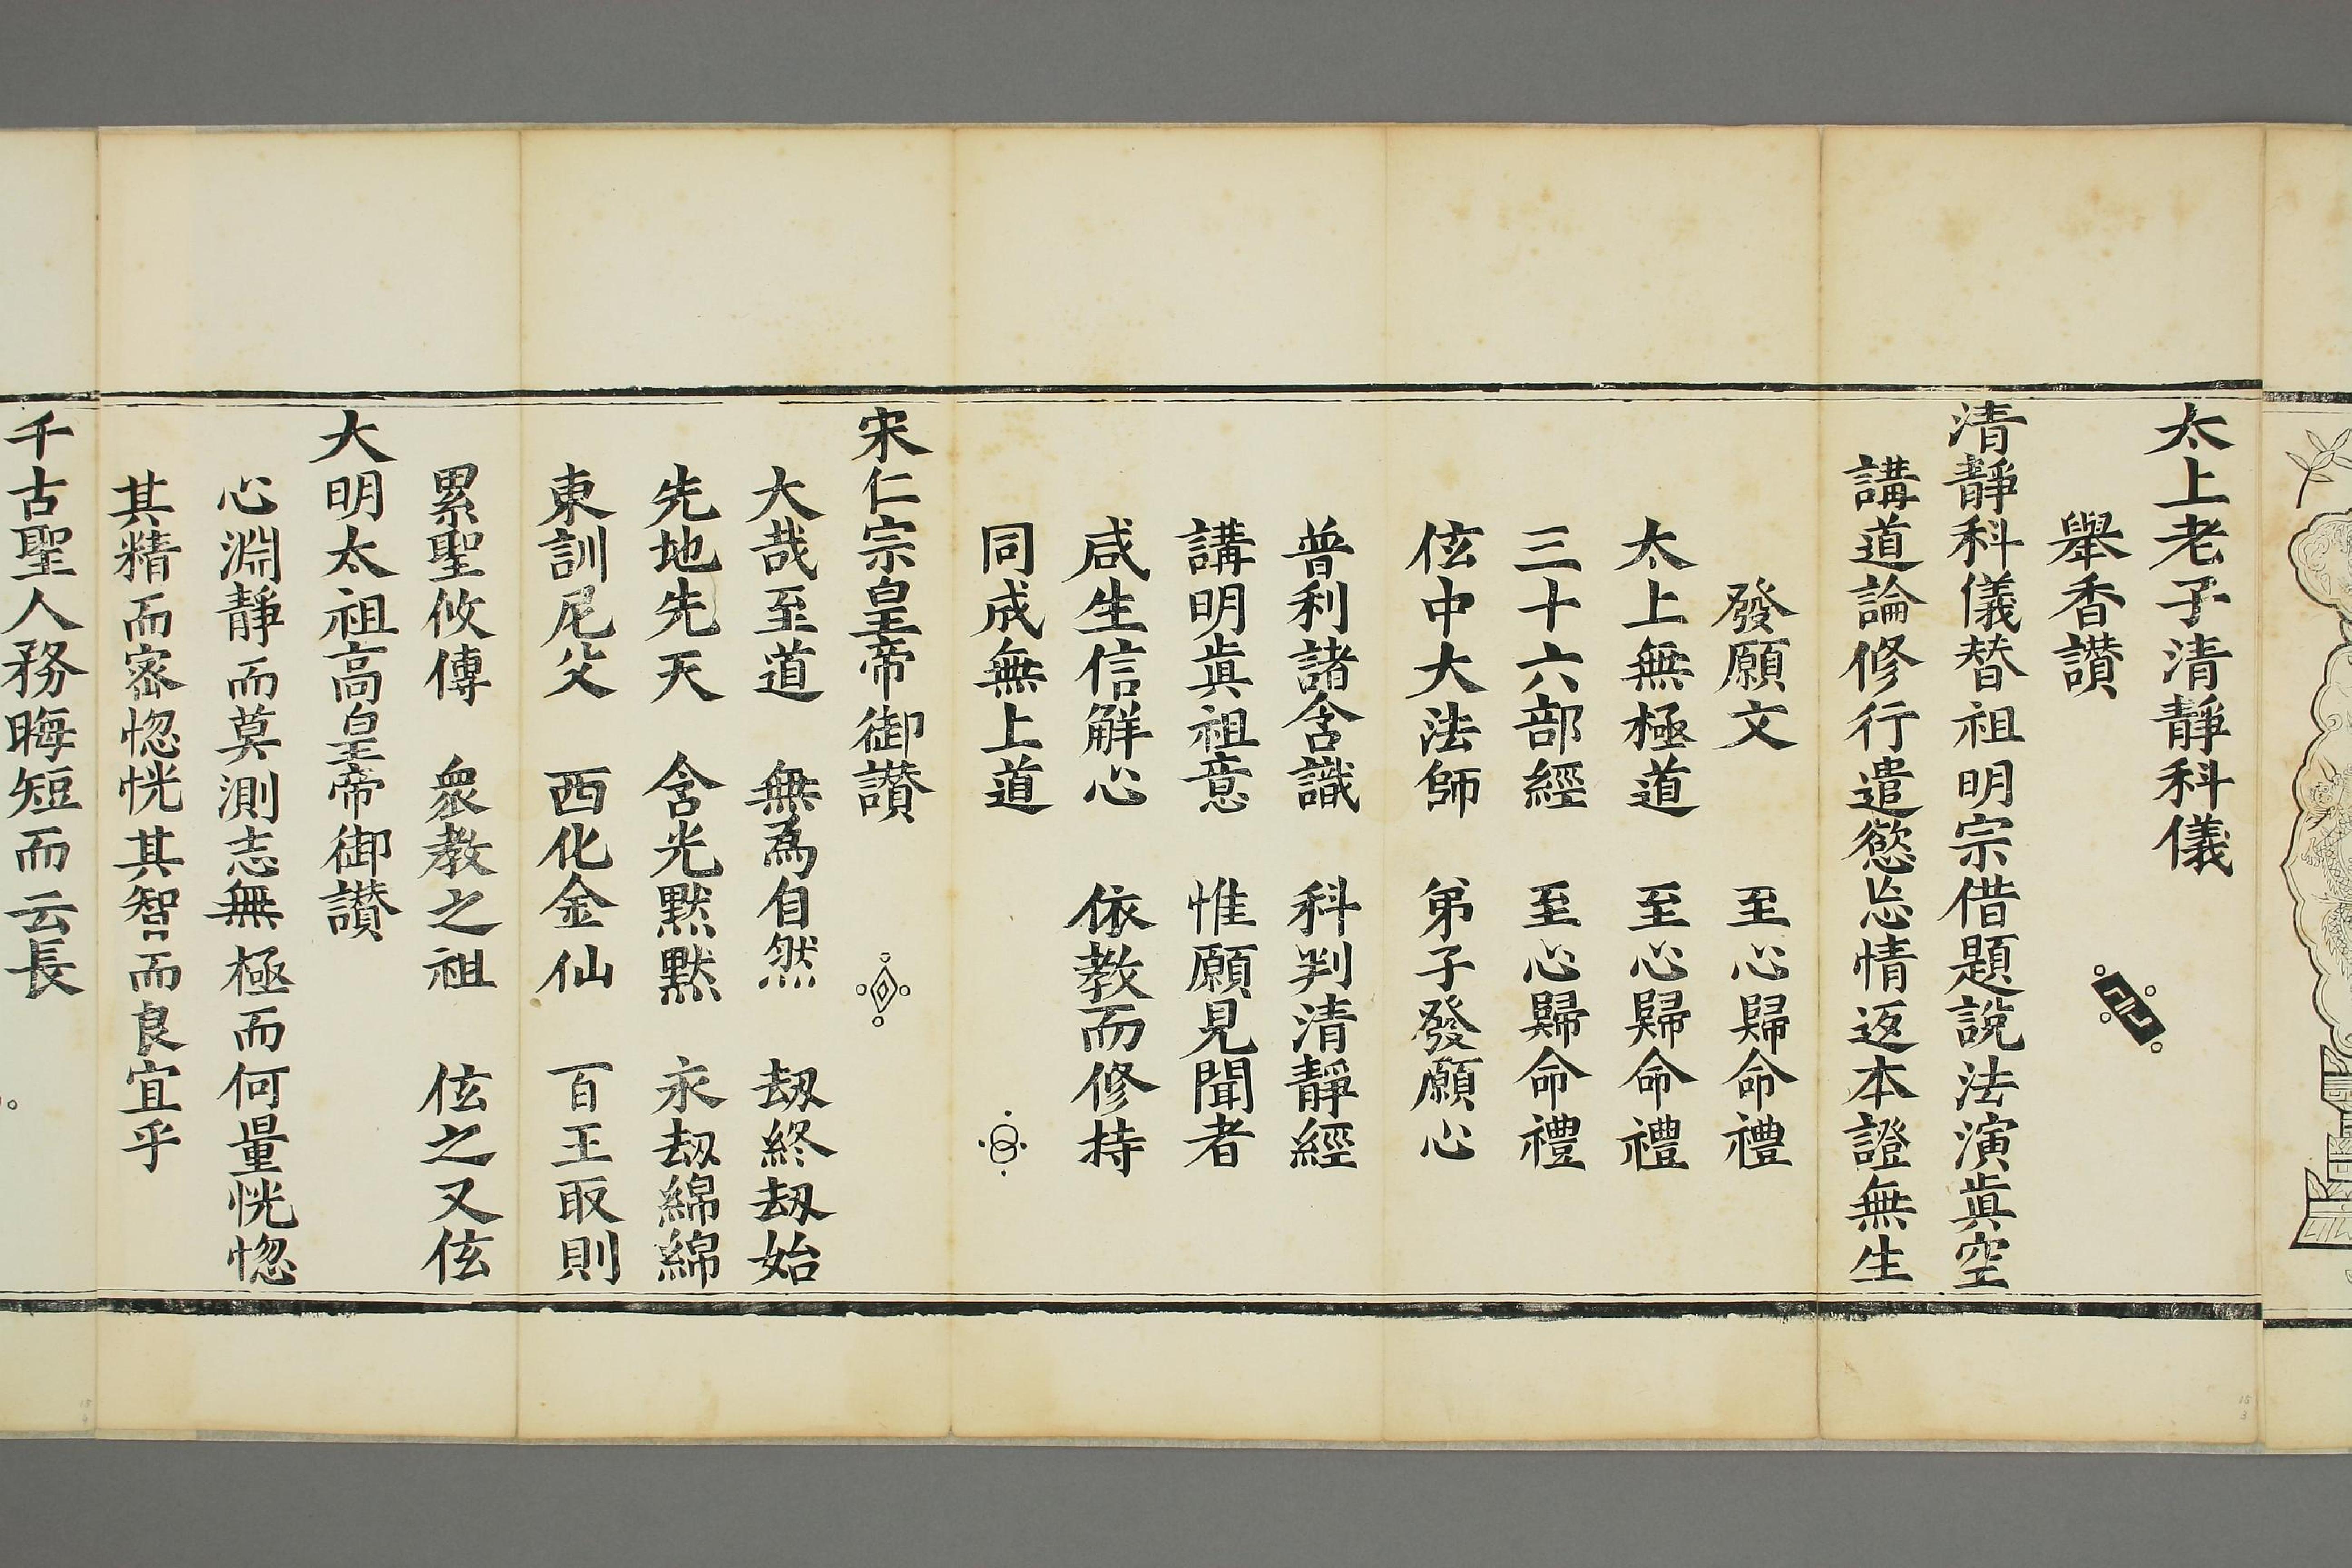 太上老子清靜科儀
舉香讚
清靜科儀替祖明宗借題說法演眞空
講道論修行遣慾忘情返本證無生
發願文　至心歸命禮
太上無極道　至心歸命禮
三十六部經　至心歸命禮
伭中大法師　弟子發願心
普利諸含識　科判清靜經
講明眞祖意　惟願見聞者
咸生信解心　依教而修持
同成無上道
宋仁宗皇帝御讚
大哉至道　無爲自然　劫終劫始
先地先天　含光默默　永劫綿綿
東訓尼父　西化金仙　百王取則
累聖攸傳　眾教之祖　伭之又伭
大明太祖高皇帝御讚
心淵靜而莫測志無極而何量恍惚
其精而密惚恍其智而良宜乎
千古聖人務晦短而云長